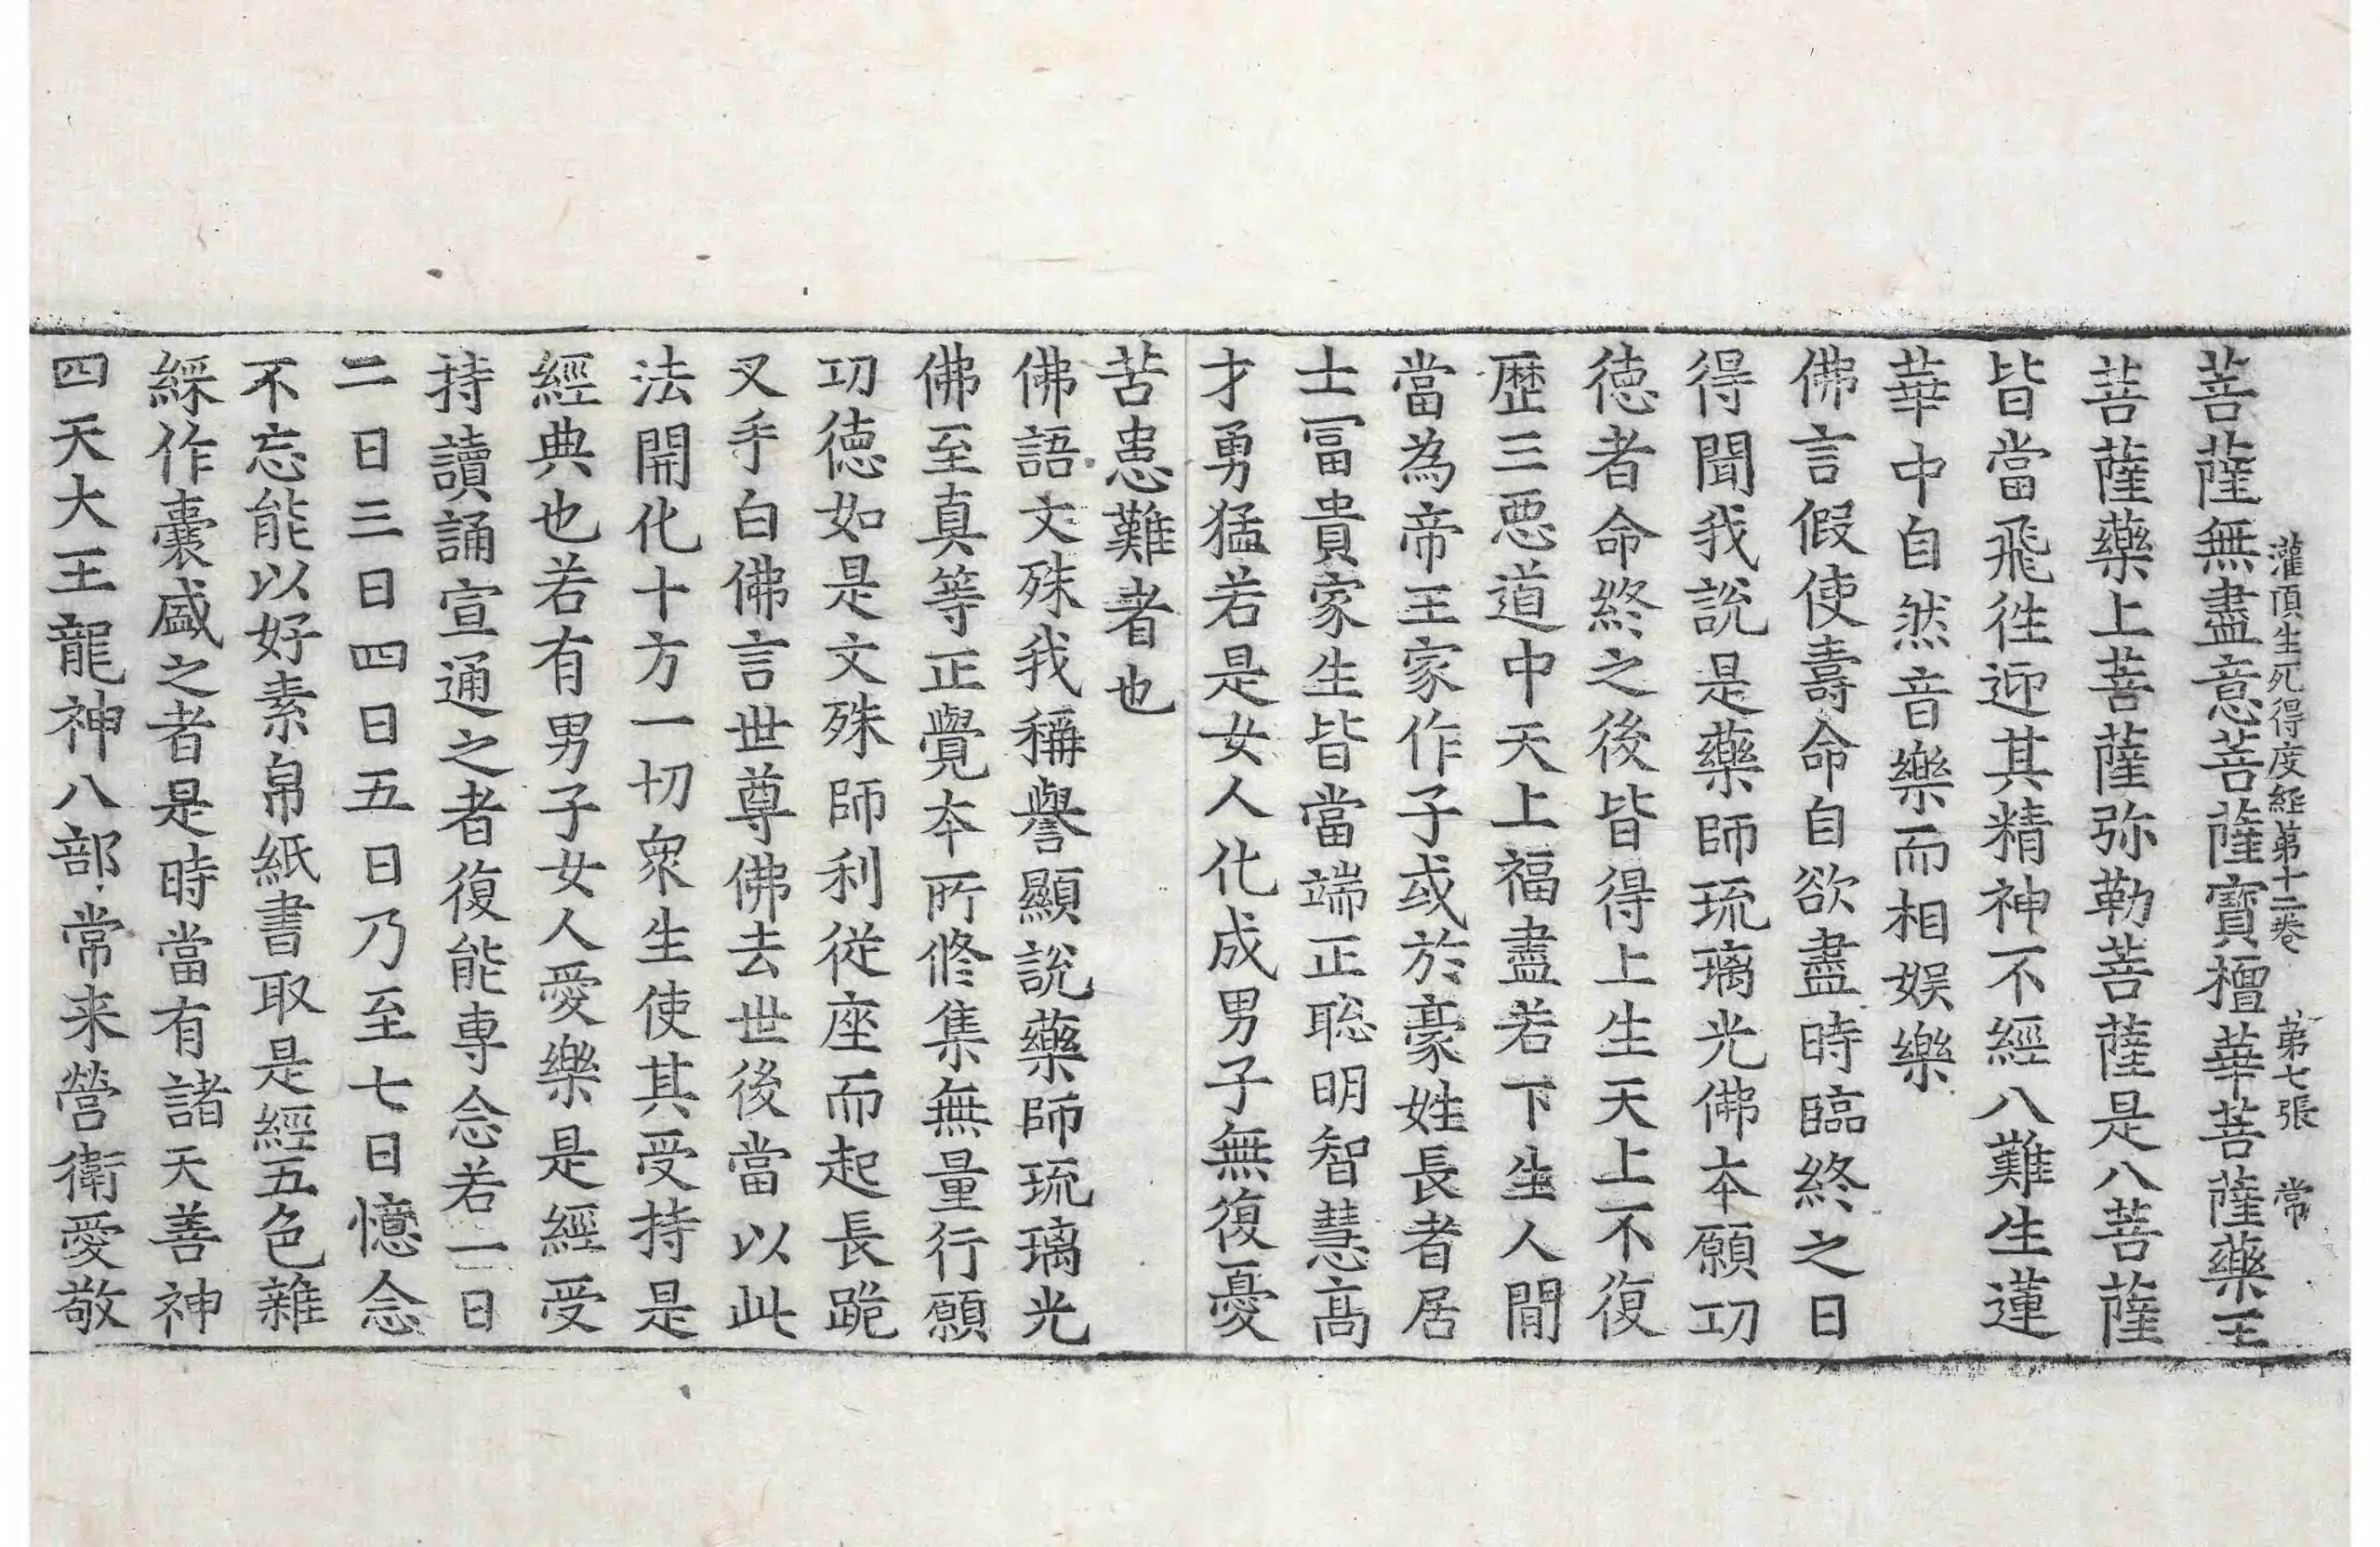 灌頂生死得度經第十二卷 第七張 常
菩薩無盡意菩薩寶檀華菩薩藥王
菩薩藥上菩薩弥勒菩薩是八菩薩
皆當飛徃迎其精神不經八難生蓮
華中自然音樂而相娛樂
佛言假使壽命自欲盡時臨終之日
得聞我說是藥師琉璃光佛本願功
德者命終之後皆得上生天上不復
歷三惡道中天上福盡若下生人間
當為帝王家作子或於豪姓長者居
士冨貴家生皆當端正聡明智慧髙
才勇猛若是女人化成男子無復憂
苦患難者也
佛語文殊我稱譽顯說藥師琉璃光
佛至真等正覺本所修集無量行願
功德如是文殊師利從座而起長跪
叉手白佛言世尊佛去世後當以此
法開化十方一切衆生使其受持是
經典也若有男子女人愛樂是經受
持讀誦宣通之者復能專念若一日
二日三日四日五日乃至七日憶念
不忘能以好素帛紙書取是經五色雜
綵作囊盛之者是時當有諸天善神
四天大王龍神八部常来營衛愛敬